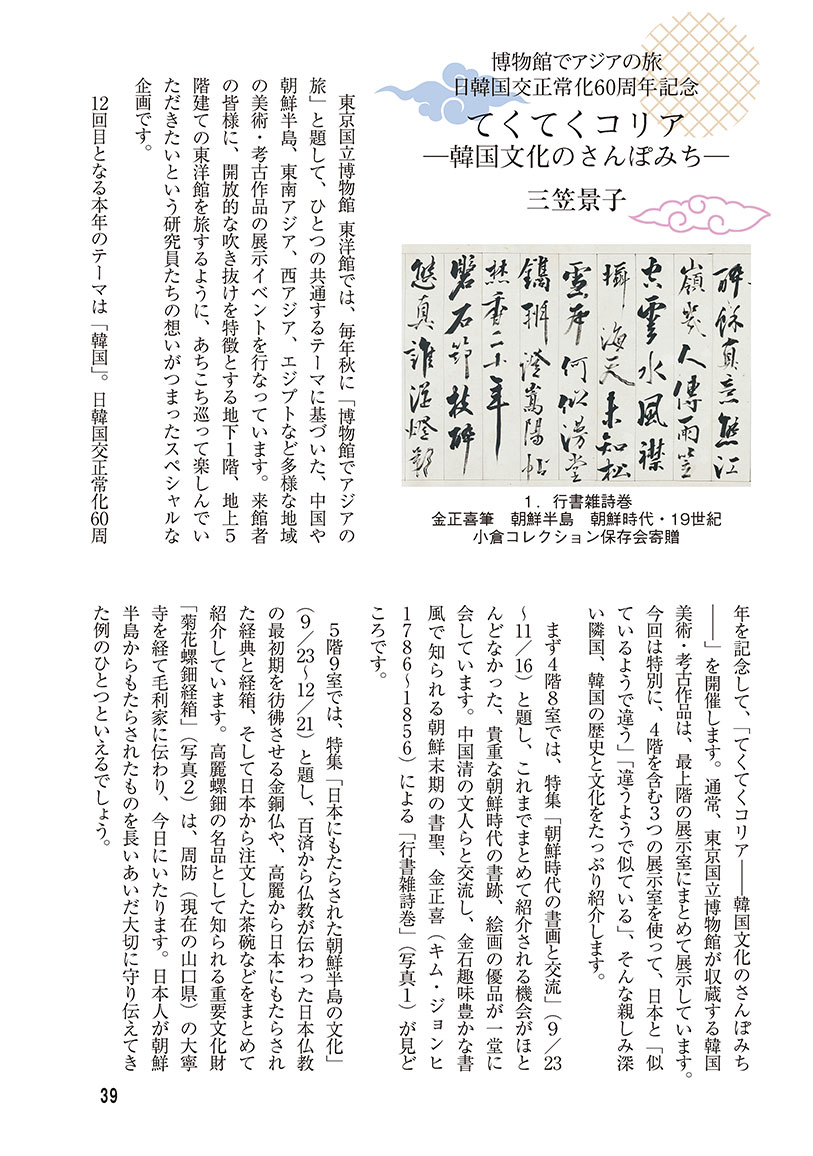 博物館でアジアの旅
日韓国交正常化60周年記念
てくてくコリア
―韓国文化のさんぽみち―
三笠景子
雲水風襟
海天未知松
何似漫堂
嵩陽帖
焚香二十年
1．行書雑詩巻
金正喜筆　朝鮮半島　朝鮮時代・19世紀
小倉コレクション保存会寄贈
東京国立博物館 東洋館では、毎年秋に「博物館でアジアの
旅」と題して、ひとつの共通するテーマに基づいた、中国や
朝鮮半島、東南アジア、西アジア、エジプトなど多様な地域
の美術・考古作品の展示イベントを行なっています。来館者
の皆様に、開放的な吹き抜けを特徴とする地下1階、地上5
階建ての東洋館を旅するように、あちこち巡って楽しんでい
ただきたいという研究員たちの想いがつまったスペシャルな
企画です。
12回目となる本年のテーマは「韓国」。日韓国交正常化60周
年を記念して、「てくてくコリア――韓国文化のさんぽみち
――」を開催します。通常、東京国立博物館が収蔵する韓国
美術・考古作品は、最上階の展示室にまとめて展示しています。
今回は特別に、4階を含む3つの展示室を使って、日本と「似
ているようで違う」「違うようで似ている」、そんな親しみ深
い隣国、韓国の歴史と文化をたっぷり紹介します。
まず4階8室では、特集「朝鮮時代の書画と交流」（9／23
～11／16）と題し、これまでまとめて紹介される機会がほと
んどなかった、貴重な朝鮮時代の書跡、絵画の優品が一堂に
会しています。中国清の文人らと交流し、金石趣味豊かな書
風で知られる朝鮮末期の書聖、金正喜（キム・ジョンヒ
1786～1856）による「行書雑詩巻」（写真1）が見ど
ころです。
5階9室では、特集「日本にもたらされた朝鮮半島の文化」
（9／23～12／21）と題し、百済から仏教が伝わった日本仏教
の最初期を彷彿させる金銅仏や、高麗から日本にもたらされ
た経典と経箱、そして日本から注文した茶碗などをまとめて
紹介しています。高麗螺鈿の名品として知られる重要文化財
「菊花螺鈿経箱」（写真2）は、周防（現在の山口県）の大寧
寺を経て毛利家に伝わり、今日にいたります。日本人が朝鮮
半島からもたらされたものを長いあいだ大切に守り伝えてき
た例のひとつといえるでしょう。
39